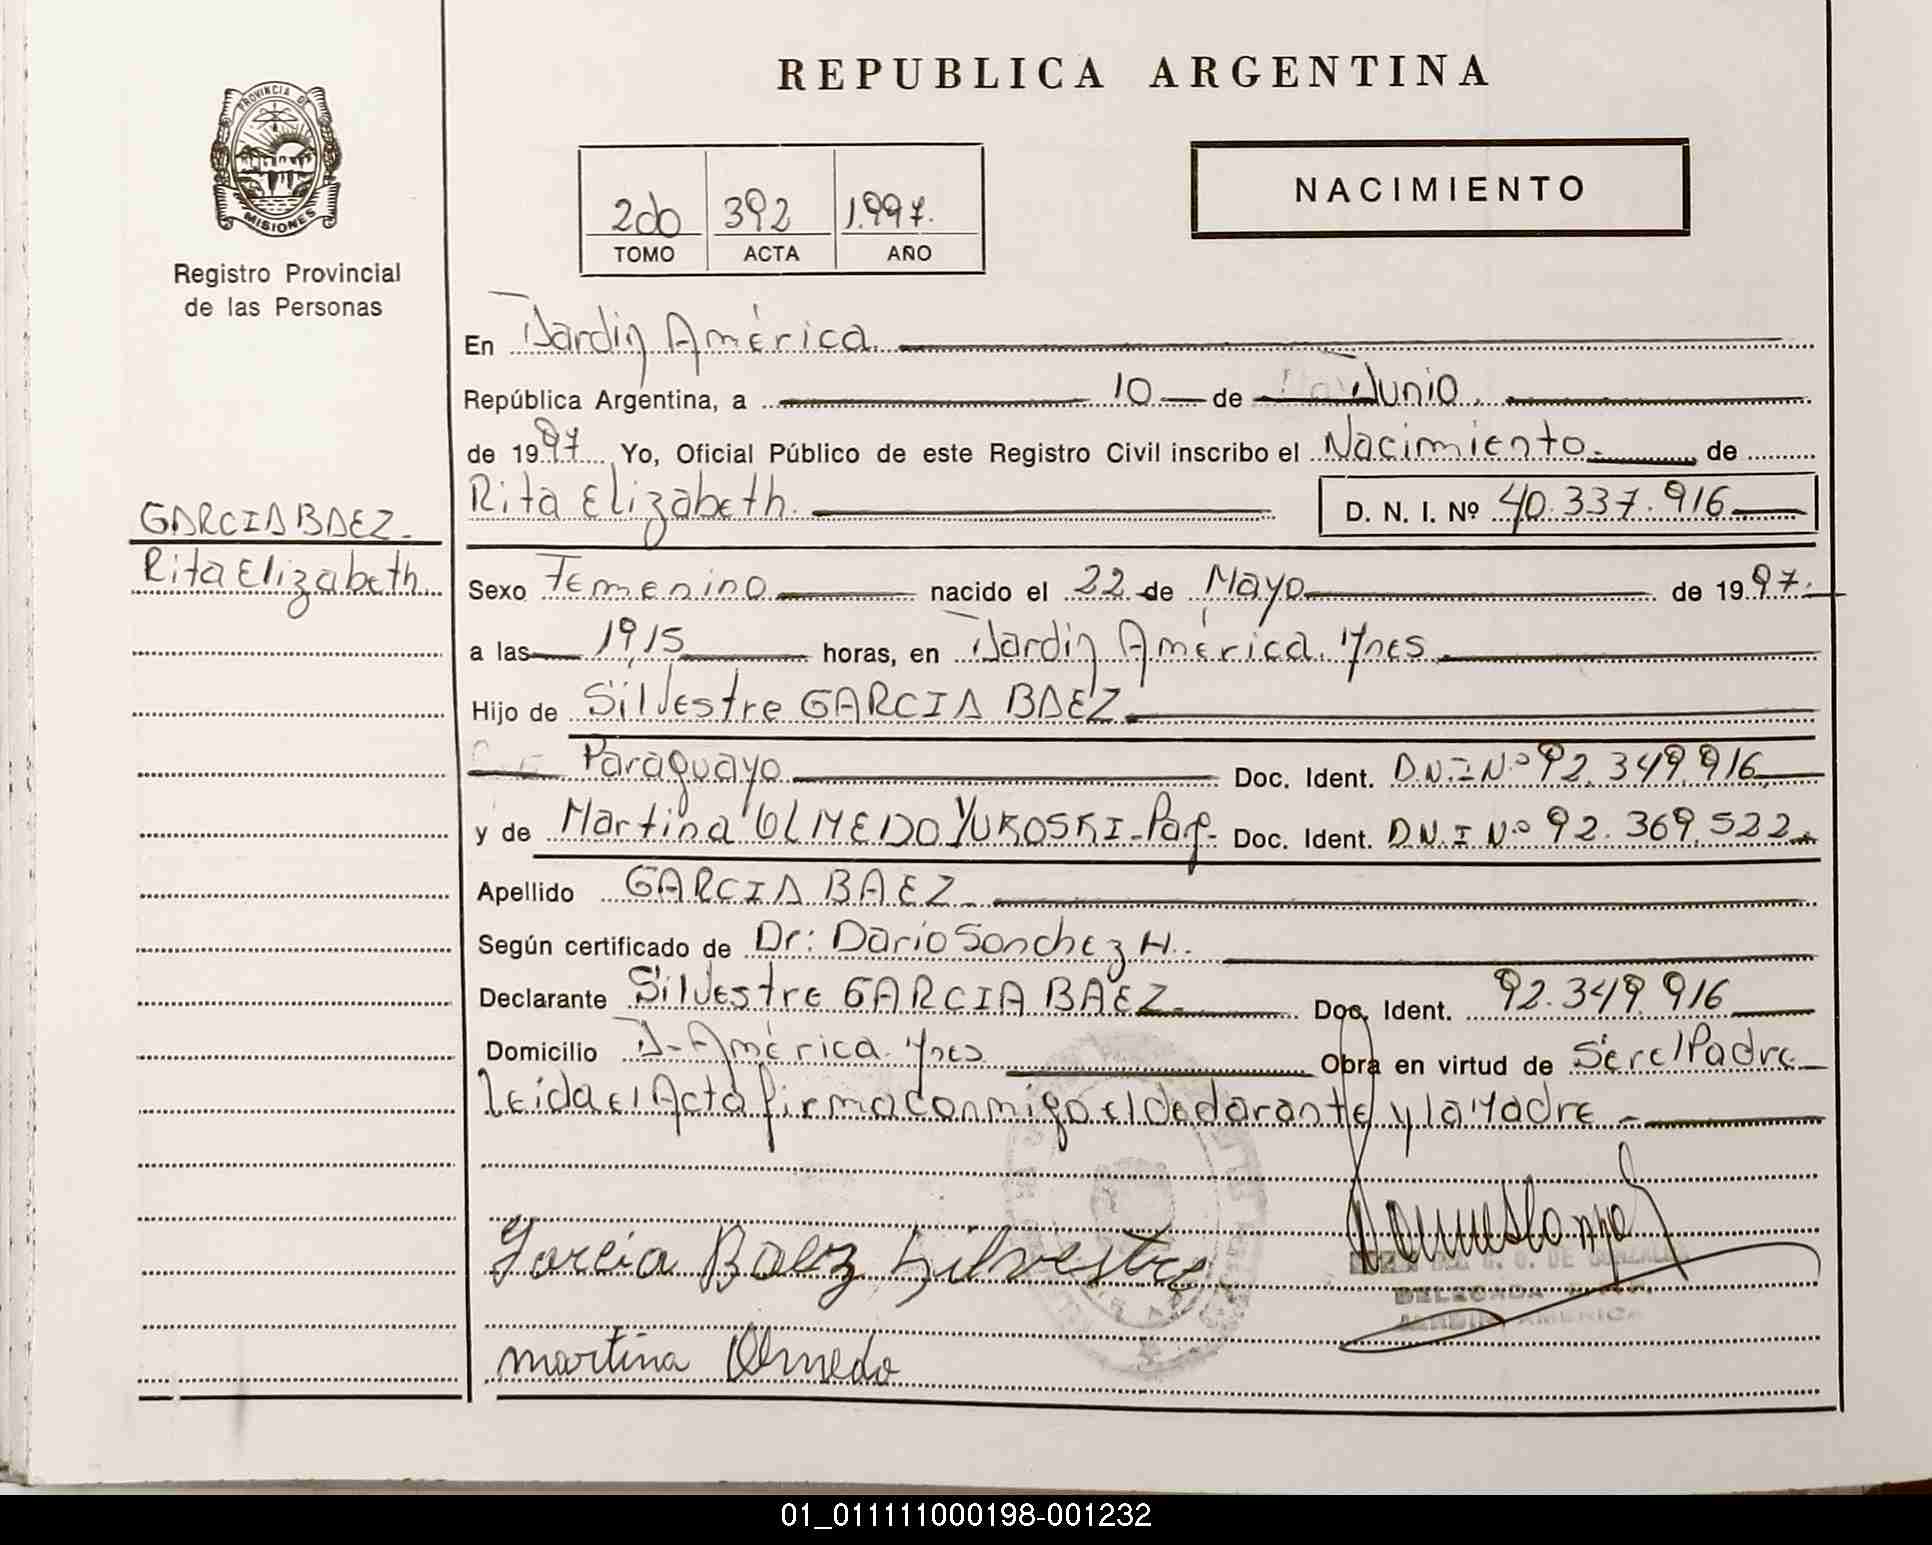 PROVINCIA DE
MISIONES
Registro Provincial
de las Personas
GARCIA BAEZ.
Rita Elizabeth.
REPUBLICA ARGENTINA
2do 392 1.997.
TOMO ACTA AÑO
NACIMIENTO
En Jardin América.
República Argentina, a 10 de Junio.
de 1997 Yo, Oficial Público de este Registro Civil inscribo el Nacimiento. de
Rita Elizabeth. D. N. I. Nº 40.337.916
Sexo Femenino nacido el 22 de Mayo de 1997.
a las 19,15 horas, en Jardin América. Mnes.
Hijo de Silvestre GARCIA BAEZ
Paraguayo Doc. Ident. D.N.I Nº 92.349.916
y de Martina OLMEDO YUKOSKI - Par- Doc. Ident. D.N.I Nº 92.369.522
Apellido GARCIA BAEZ
Según certificado de Dr: Dario Sanchez H.
Declarante Silvestre GARCIA BAEZ. Doc. Ident. 92.349.916
Domicilio J- América. Mnes Obra en virtud de Ser el Padre
leida el Acta firma conmigo el declarante y la Madre -
Garcia Baez Silvestre
G. DE GONZALEZ
DELEGADA
JARDIN AMERICA
martina Olmedo
01_011111000198-001232